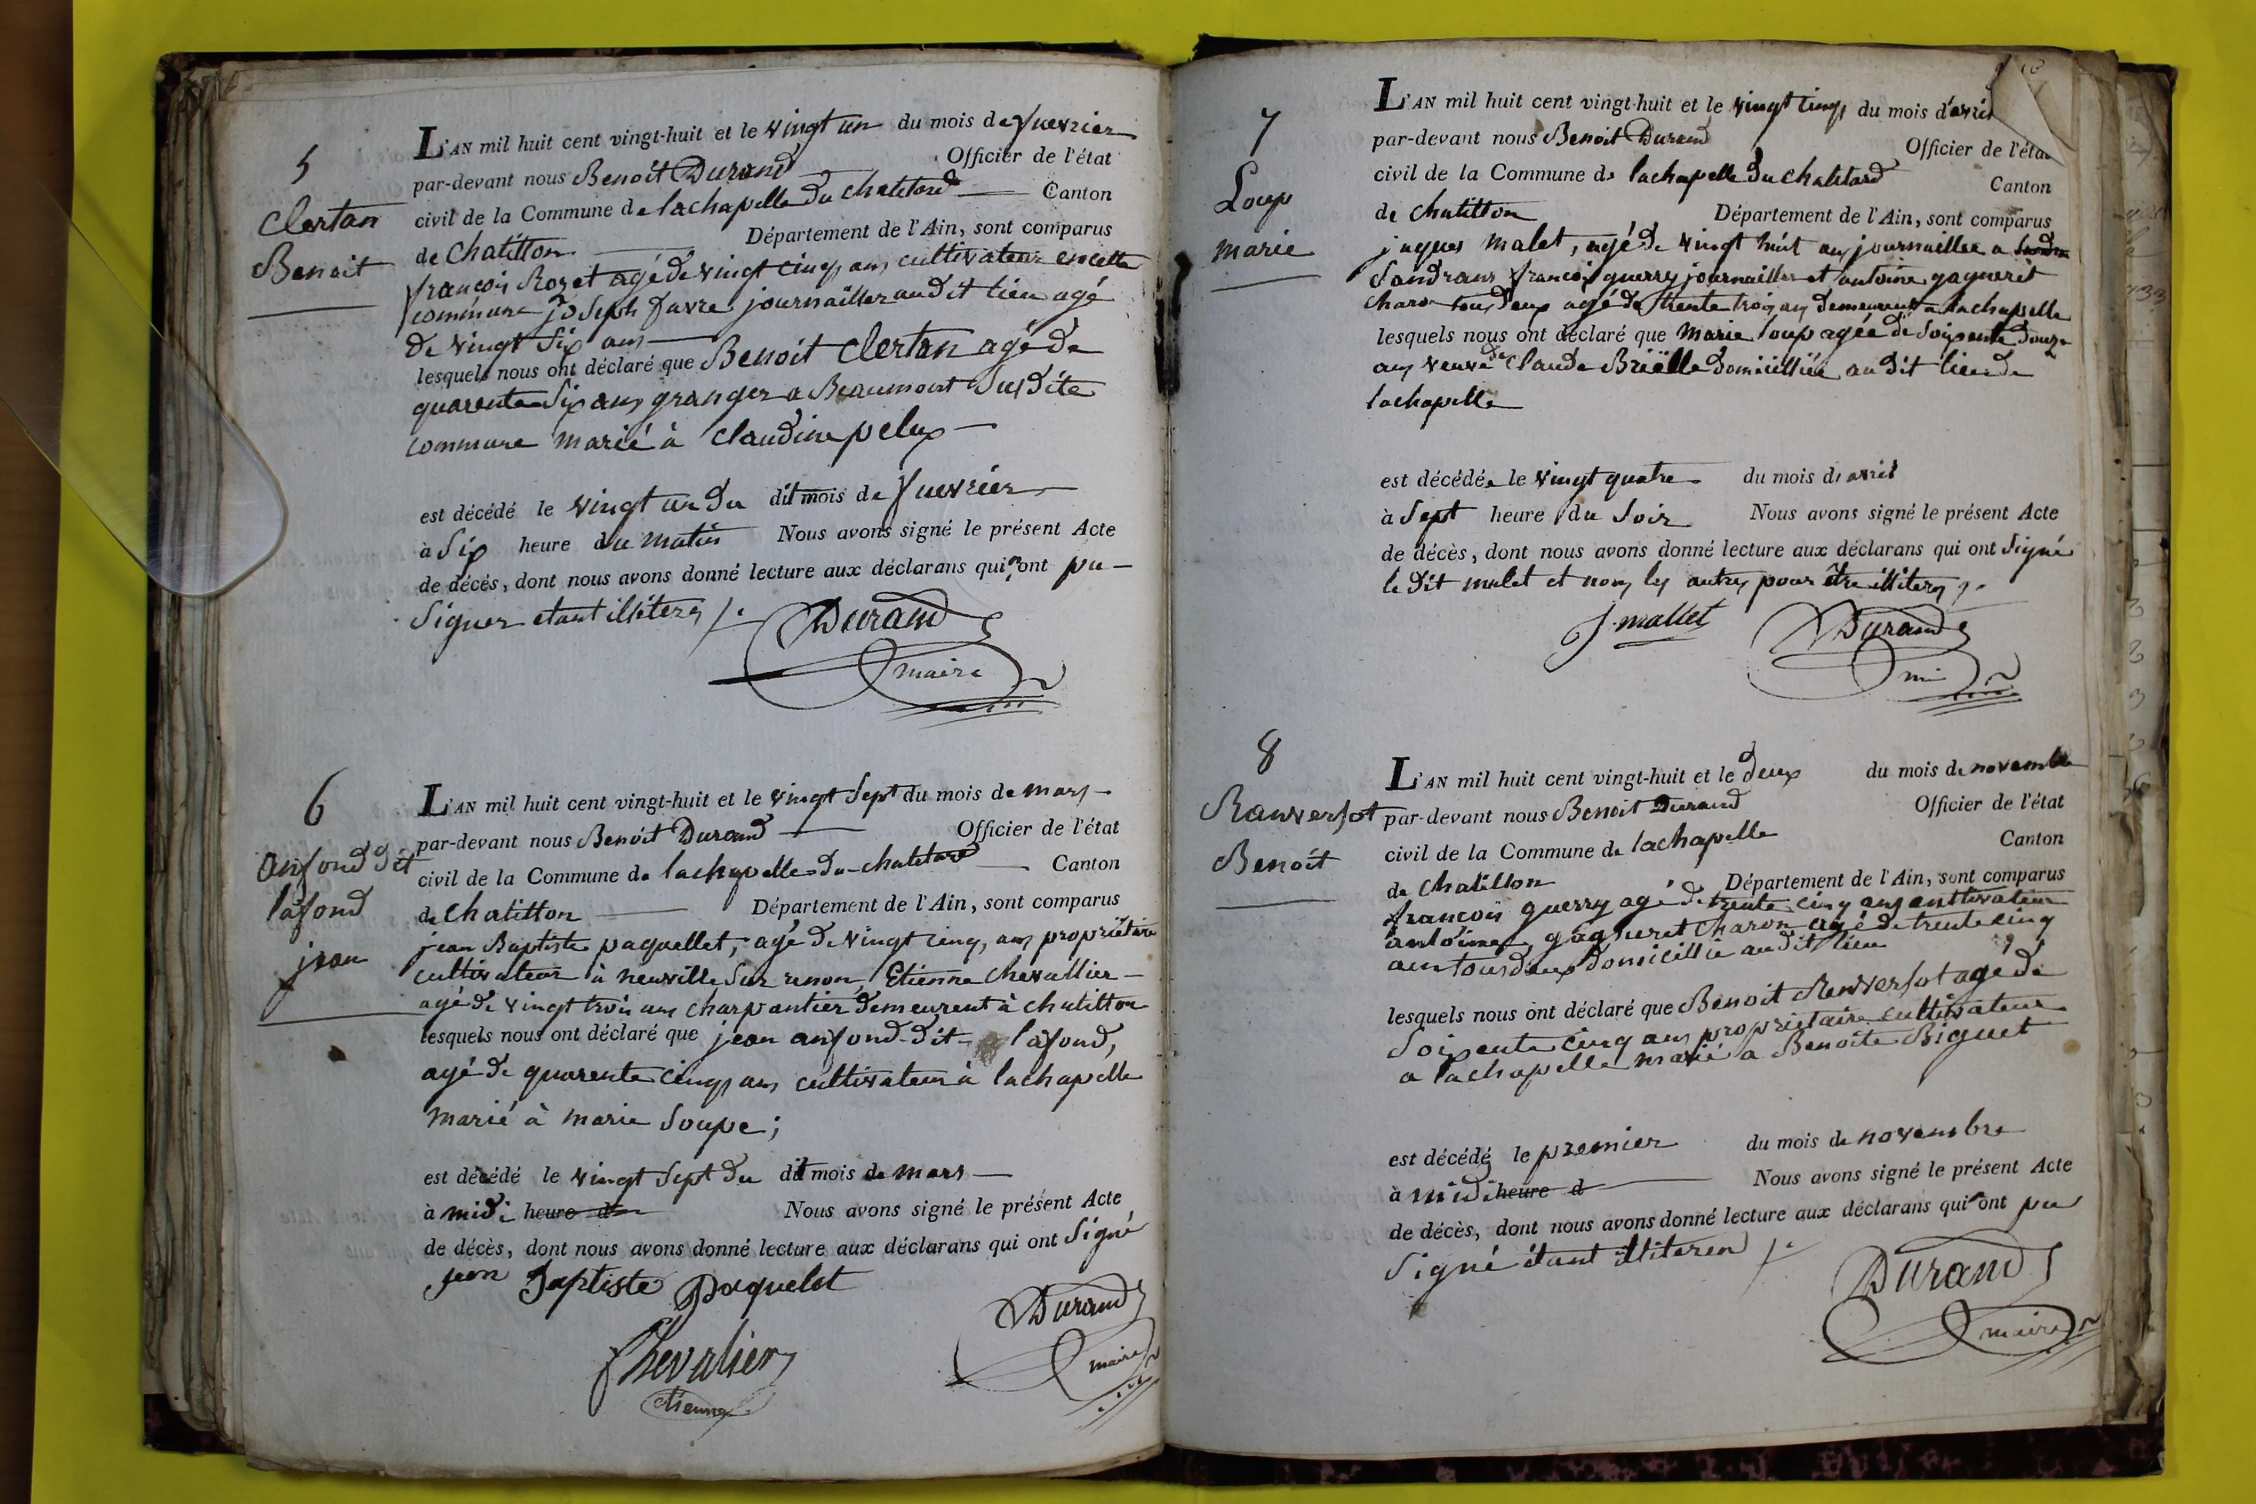 5
Clertan
Benoit
L'AN mil huit cent vingt-huit et le vingt un du mois de fuevrier
par-devant nous Benoit Durand Officier de l'état
civil de la Commune de lachapelle du chatelard Canton
de Chatillon Département de l'Ain, sont comparus
françois Rozet agé de vingt cinq ans cultivateur en cette
commune joseph favre journaillier audit lieu agé
de vingt six ans
lesquels nous ont déclaré que Benoit Clertan agé de
quarente six ans granger a Beaumont susdite
commune marié à claudine pelux
est décédé le vingt un du dit mois de fuevrier
à six heure du matin Nous avons signé le présent Acte
de décès, dont nous avons donné lecture aux déclarans qui n'ont pu
signer etant illiteres
Durand
maire
6
anfond dit
lafond
jean
L'AN mil huit cent vingt-huit et le vingt sept du mois de mars
par-devant nous Benoit Durand Officier de l'état
civil de la Commune de lachapelle du chatelard Canton
de Chatillon Département de l'Ain, sont comparus
jean Baptiste paquellet, agé de vingt cinq ans propriétaire
cultivateur à neuville sur renon, Etienne Chevallier
agé de vingt trois ans charpantier demeurent à chatillon
lesquels nous ont déclaré que jean anfond dit lafond,
agé de quarente cinq ans cultivateur à lachapelle
marié à marie soupe;
est décédé le vingt sept du dit mois de mars
à midi heure d Nous avons signé le présent Acte
de décès, dont nous avons donné lecture aux déclarans qui ont signé
jean Baptiste Paquelet
Durand
maire
Chevalier
etienne
7
Loup
marie
L'AN mil huit cent vingt-huit et le vingt cinq du mois d'avril
par-devant nous Benoit Durand Officier de l'état
civil de la Commune de lachapelle du chatelard Canton
de chatillon Département de l'Ain, sont comparus
jaques malet, agé de vingt huit ans journaillier a
Sandrans françois guerry journaillier et antoine gagneret
charon tous deux agé de trente trois ans demeurent a lachapelle
lesquels nous ont déclaré que marie loup agée de soixente douze
ans veuve de Claude Brièlle domicilliée au dit lieu de
lachapelle
est décédée le vingt quatre du mois d'avril
à sept heure du soir Nous avons signé le présent Acte
de décès, dont nous avons donné lecture aux déclarans qui ont signé
le dit malet et non les autres pour être illiteres
J. mallet
Durand
8
Ranversot
Benoit
L'AN mil huit cent vingt-huit et le deux du mois de novembre
par-devant nous Benoit Durand Officier de l'état
civil de la Commune de lachapelle Canton
de chatillon Département de l'Ain, sont comparus
françois guerry agé de trente cinq ans cultivateur
antoine gagneret charon agé de trente cinq
ans tous deux domicillié audit lieu
lesquels nous ont déclaré que Benoit Renversot agé de
soixente cinq ans propriétaire cultivateur
a lachapelle marié a Benoite Biguet
est décédé le premier du mois de novembre
à midi heure d Nous avons signé le présent Acte
de décès, dont nous avons donné lecture aux déclarans qui n'ont pu
signé étant illiteren
Durand
maire